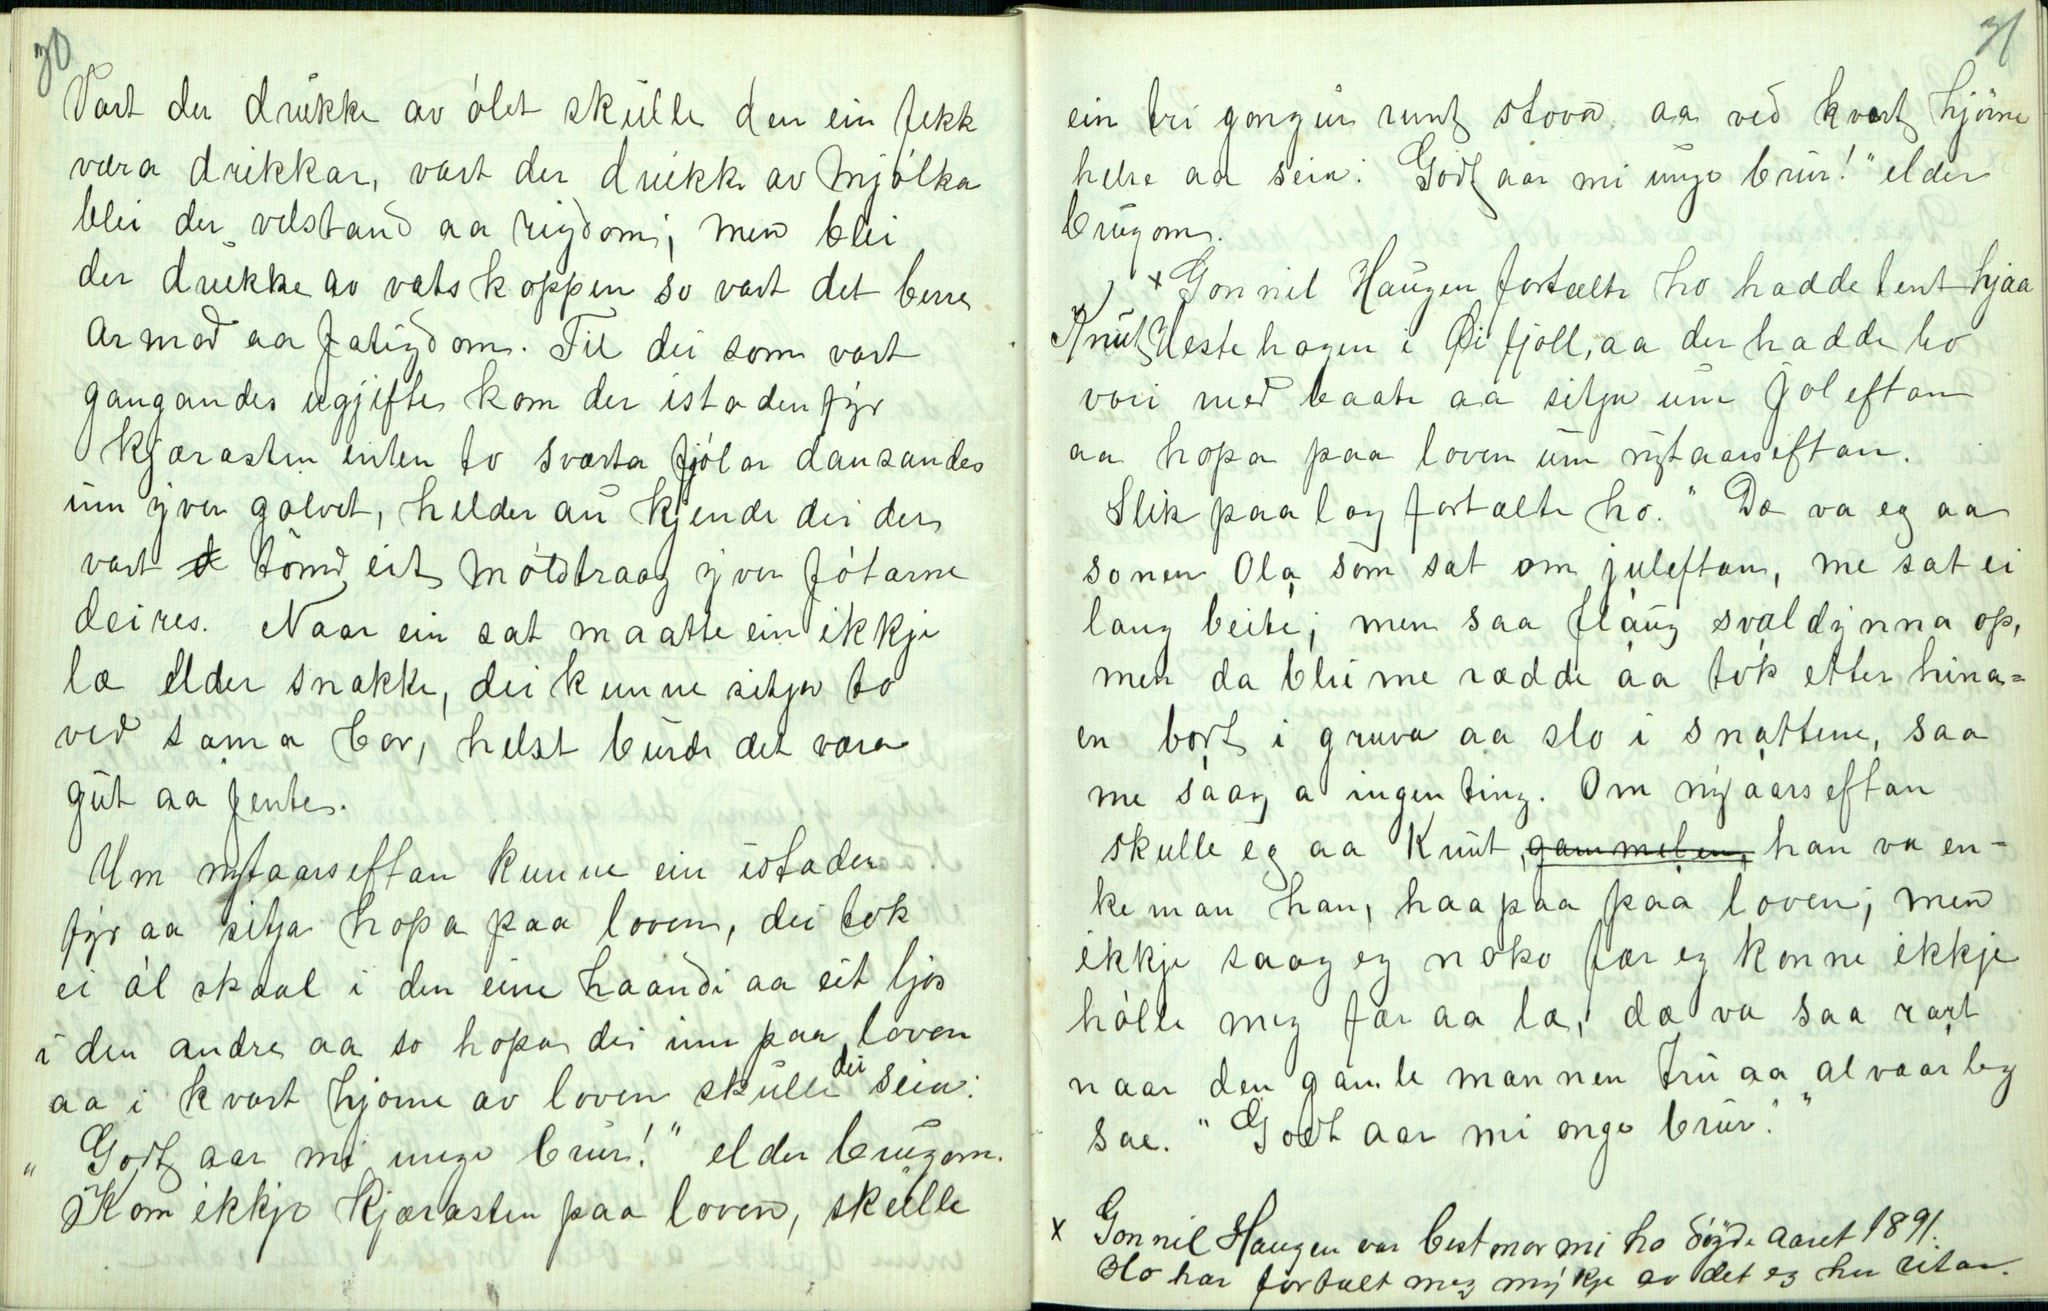 30
Vart der drukke av ólet skulle den ein fekk
være drikkar, vart der drukke av mjólka
blei der velstand aa rigdom; men blei
der drukke av vatskoppen so vart det berre
armod aa fatigdom. Til dei som vart
gangandes ugjifte kom der istaden fyr
kjærasten enten to svarta fjólar dansandes
um yver golvet, helder au kjende dei der
vart tómd eit móldtraag yver fótarne
deires. Naar ein sat maatte ein ikkje
læ elder snakke, dei kunne sitja to
ved sama bor, helst burde det være
gut aa jente.
Um nytaarseftan kunne ein istaden
fyr aa sitja hopa paa loven, dei tok
ei ól skaal i den eine haandi aa eit ljos
i den andre aa so hopa dei inn paa loven
aa i kvart hjorne av loven skulle dei seia:
"Godt aar mi unge brur!" elder brugom.
Kom ikkje kjærasten paa loven, skulle
31
ein tri gongur runt stova aa ved kvart hjörne
helse aa seia: Godt aar mi unge brur!" elder
brugom.
x Gonnil Haugen fortælte ho hadde tent hjaa
Knut Hestehagen i Øifjoll, aa der hadde ho
vori med baate aa sitja um Joleftan
aa hopa paa loven um nytaarseftan.
Slik paa lag fortælte ho. "Dæ va eg aa
sonen Ola som sat om juleftan, me sat ei
lang beite; men saa flaug svaldynna op,
men da blei me rædde aa tok etter hina=
en bort i gruva aa slo i snattene, saa
me saag a ingen ting. Om nyaarseftan
skulle eg aa Knut, gammelen, han va en-
keman han, haapaa paa loven; men
ikkje saag eg noko fær eg konne ikkje
hólle meg fær aa læ, dæ va saa rart
naar den gamle mannen tru aa alvaarleg
sae. "Godt aar mi onge brur."
x Gonnil Haugen var bestmor mi ho döyde aaret 1891.
Ho har fortalt meg mykje av det eg her ritar.